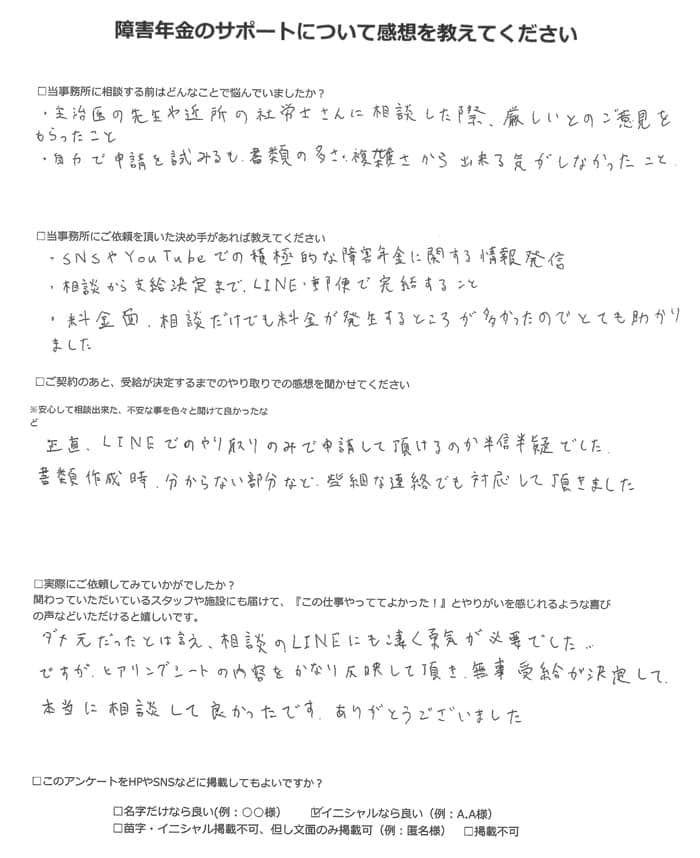 障害年金のサポートについて感想を教えてください
□当事務所に相談する前はどんなことで悩んでいましたか？
・主治医の先生や近所の社労士さんに相談した際、厳しいとのご意見を
もらったこと
・自力で申請を試みるも、書類の多さ・複雑さから出来る気がしなかったこと.
□当事務所にご依頼を頂いた決め手があれば教えてください
・SNSやYouTubeでの積極的な障害年金に関する情報発信
・相談から支給決定まで、LINE・郵便で完結すること
・料金面、相談だけでも料金が発生するところが多かったのでとても助かり
ました
□ご契約のあと、受給が決定するまでのやり取りでの感想を聞かせてください
※安心して相談出来た、不安な事を色々と聞けて良かったな
ど
正直、LINEでのやり取りのみで申請して頂けるのか半信半疑でした.
書類作成時、分からない部分など、些細な連絡でも対応して頂きました
□実際にご依頼してみていかがでしたか？
関わっていただいているスタッフや施設にも届けて、『この仕事やっててよかった！』とやりがいを感じれるような喜び
の声などいただけると嬉しいです。
ダメ元だったとは言え、相談のLINEにも凄く勇気が必要でした…
ですが、ヒアリングシートの内容をかなり反映して頂き、無事受給が決定して、
本当に相談して良かったです. ありがとうございました
□このアンケートをHPやSNSなどに掲載してもよいですか？
□名字だけなら良い(例：○○様） ☑イニシャルなら良い（例：A.A様）
□苗字・イニシャル掲載不可、但し文面のみ掲載可（例：匿名様） □掲載不可